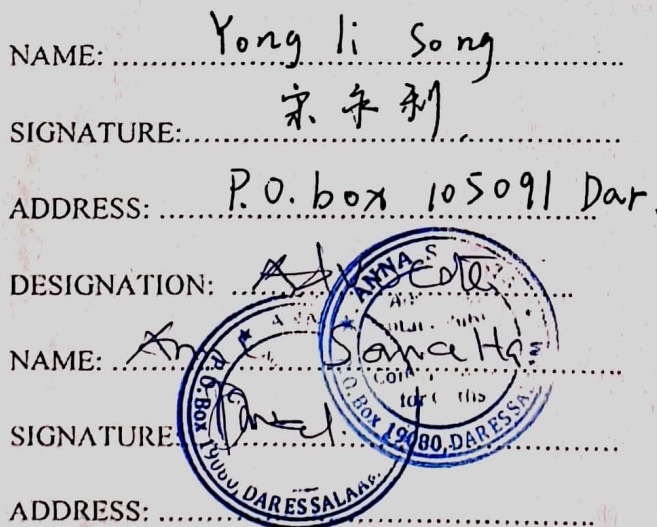 NAME: Yong li Song
SIGNATURE: 宋永利
ADDRESS: P.O. box 105091 Dar
DESIGNATION: Advocate
NAME:
SIGNATURE:
ADDRESS:
ANNA S
P.O. Box 19080, DARESSALAAM
P.O. Box 19080, DARESSA